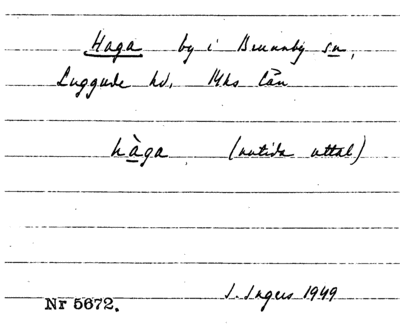 Haga by i Brunnby sn,
Luggude hd, Mhs län
hàga (nutida uttal)
I. Ingers 1949
Nr 5672.